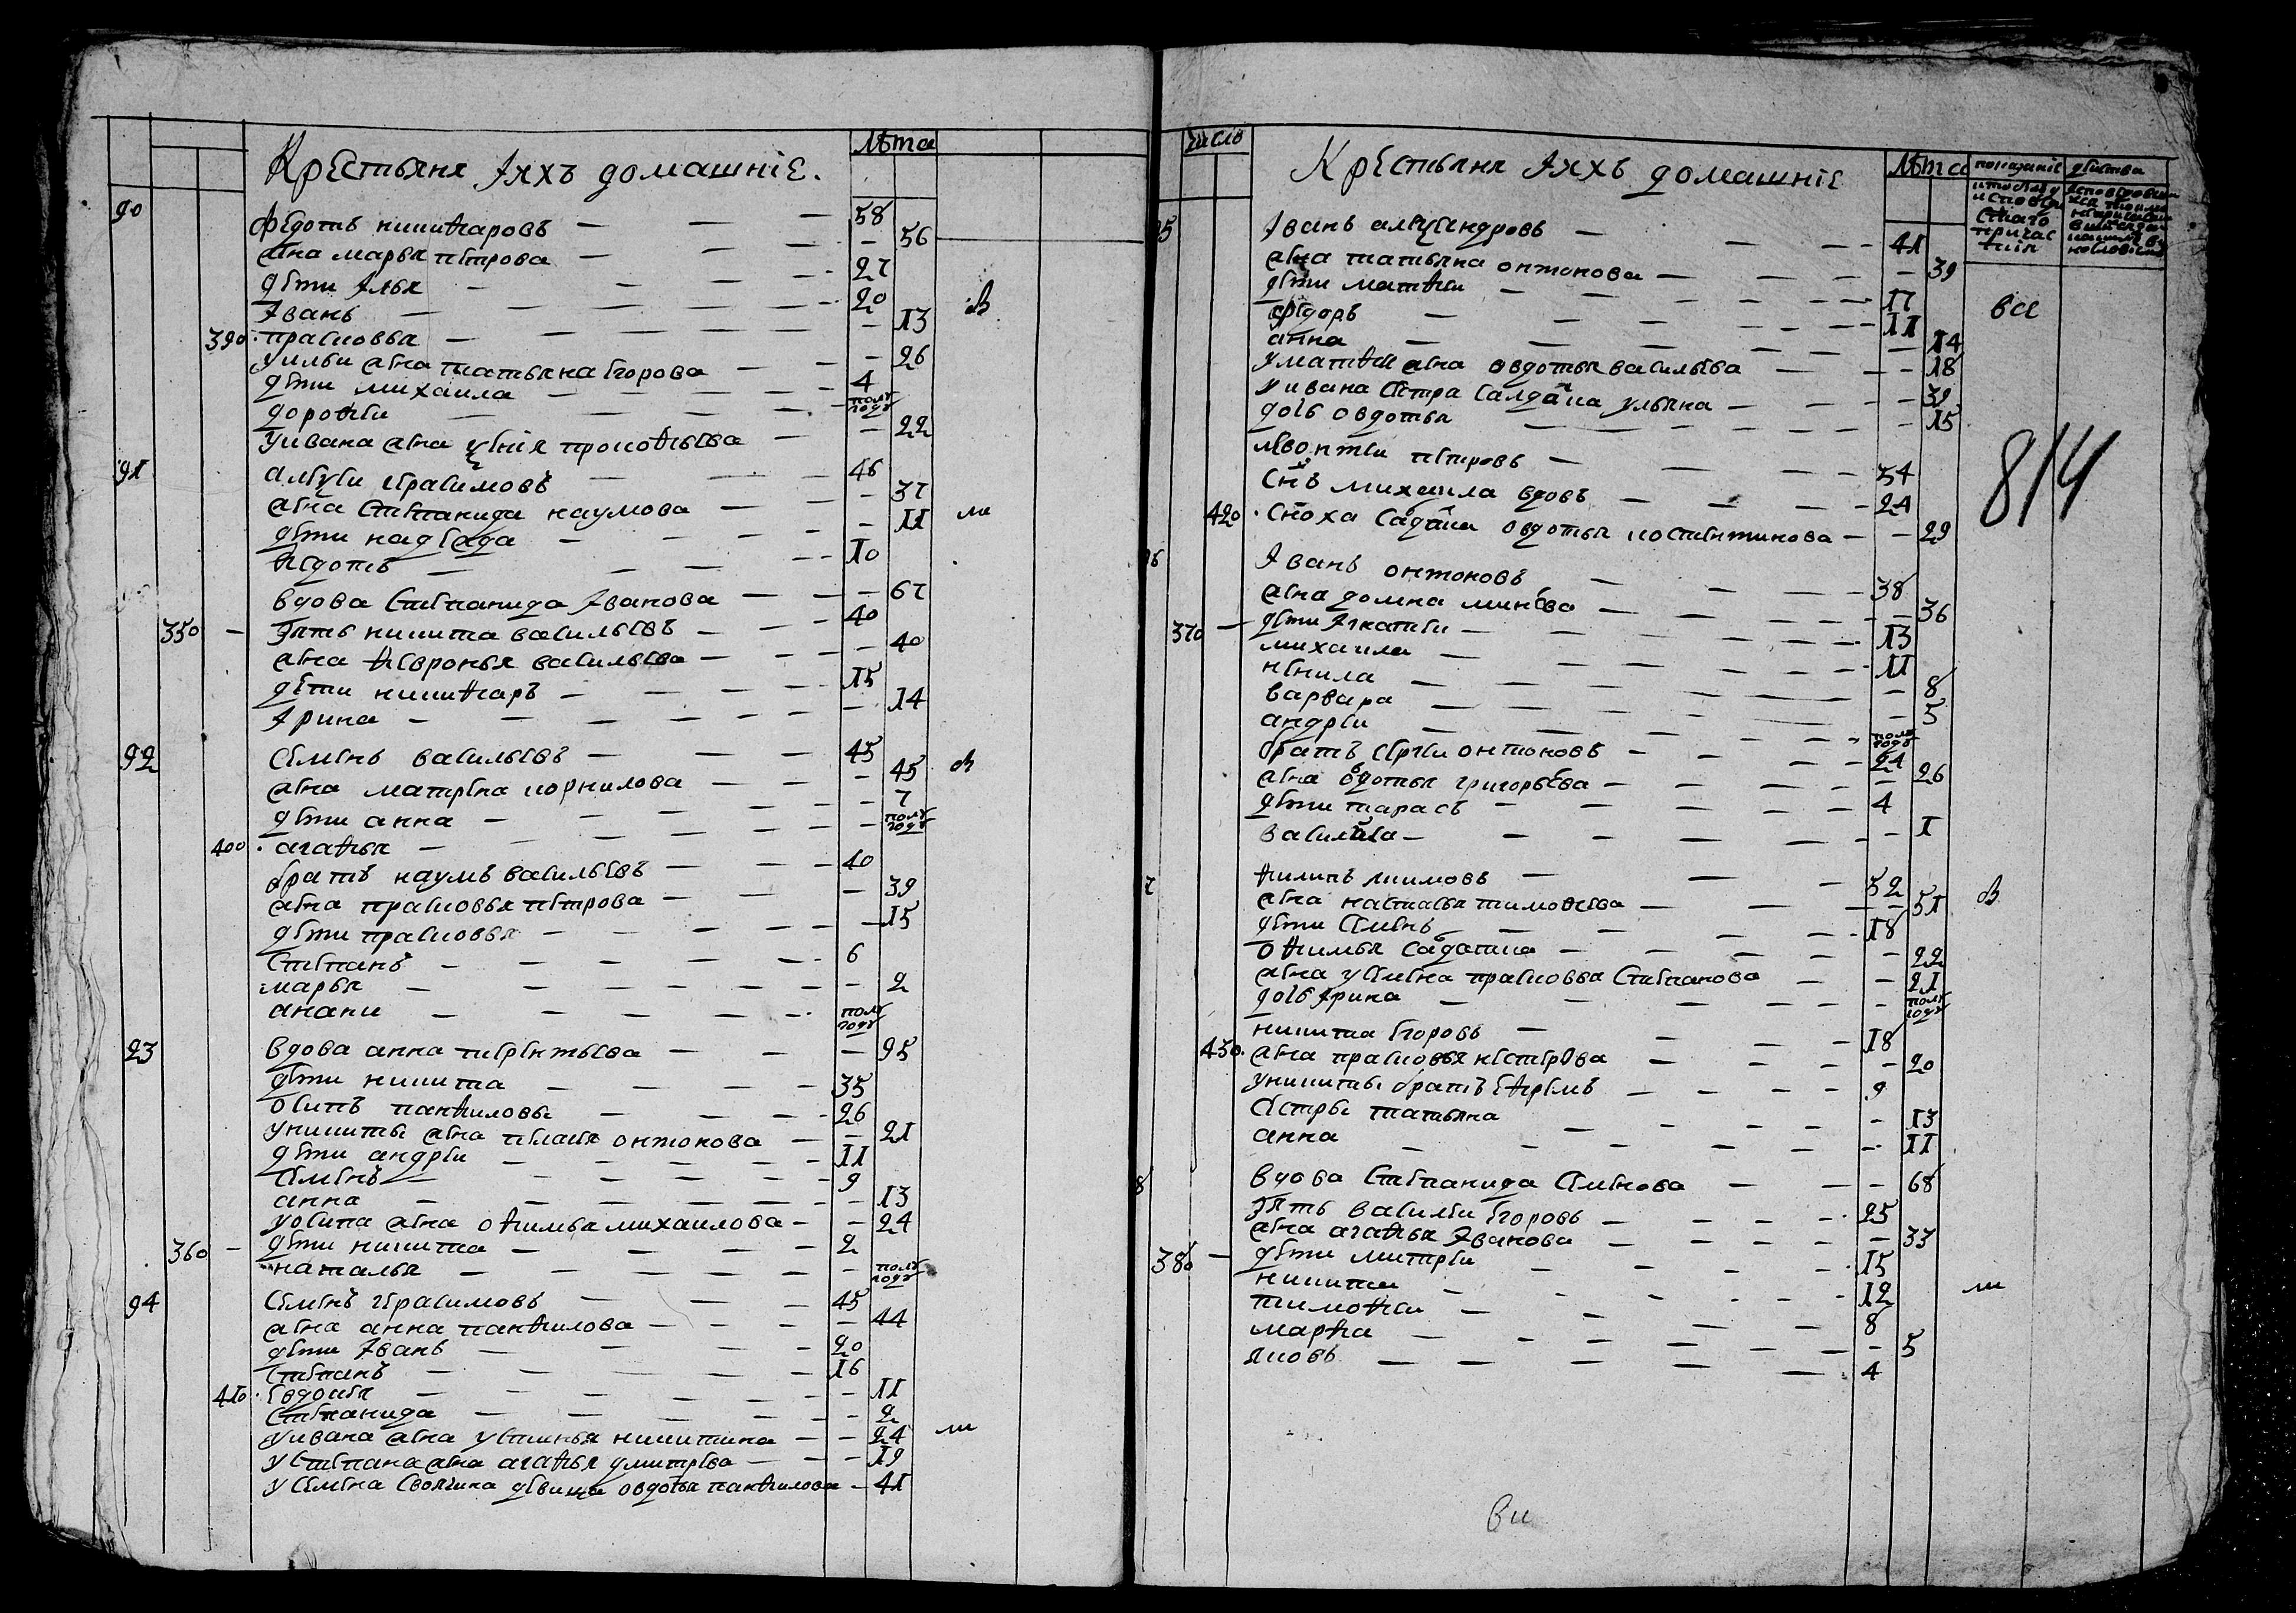 Крестьяня Ихъ домашніе. Лѣта
90 Федотъ никиѳаровъ — 58
жена марья петрова — 56
дѣти Илья — 27
Иванъ — 20
390 прасковья — 13
Уильи жена татьяна егорова — 26
дѣти михаила — 4
дороѳеи — полъ годъ
уивана жена ксенія прокоѳьева — 22
91 алексеи герасимовъ — 46
жена степанида наумова — 37
дѣти надежда — 11
ѳедотъ — 10
вдова степанида Иванова — 67
350 — зять никита васильевъ — 40
жена ѳевронья васильева — 40
дѣти никиѳаръ — 15
Ирина — 14
92 семенъ васильевъ — 45
жена матрена корнилова — 45
дѣти анна — 7
400 агаѳья — полъ годъ
братъ наумъ васильевъ — 40
жена прасковья петрова — 39
дѣти прасковья — 15
степанъ — 6
марья — 2
анани — полъ годъ
93 вдова анна терентьева — 95
дѣти никита — 35
осипъ панѳиловы — 26
уникиты жена пелагея онтонова — 21
дѣти андреи — 11
семенъ — 9
анна — 13
уосипа жена оѳимья михаилова — 24
360 — дѣти никита — 2
наталья — полъ годъ
94 семенъ герасимовъ — 45
жена анна панѳилова — 44
дѣти Иванъ — 20
степанъ — 16
410 евдокея — 11
степанида — 2
уивана жена устинья никитина — 24
у степана жена агаѳья дмитрева — 19
у семена своячина девица овдотья панѳилова — 41
число Крестьяня Ихъ домашніе Лѣта
95 Иванъ александровъ — 41
жена татьяна онтонова — 39
дѣти матѳеи — 17
Федоръ — 11
анна — 14
уматѳея жена овдотья васильева — 18
уивана сестра салдатка ульяна — 39
дочь овдотья — 15
левонтеи петровъ — 54
снъ михаила вдовъ — 24
420 сноха садатка овдотья костентинова — 29
96 Иванъ онтоновъ — 38
жена домна минеева — 36
370 — дѣти Игнатеи — 13
михаила — 11
ненила — 8
варвара — 5
андреи — полъ годъ
братъ сергеи онтоновъ — 24
жена овдотья григорьева — 26
дѣти тарасъ — 4
василиса — 1
97 ѳилипъ акимовъ — 52
жена настасья тимоѳеева — 51
дѣти семенъ — 18
оѳимья садатка — 22
жена усемена прасковья степанова — 21
дочь Ирина — полъ годъ
никита егоровъ — 18
430 жена прасковья нестерова — 20
уникиты братъ еѳремъ — 9
сестры татьяна — 13
анна — 11
98 вдова степанида семенова — 68
зять василеи егоровъ — 25
жена агаѳья Иванова — 33
380 — дѣти митреи — 15
никита — 12
тимоѳеи — 8
марѳа — 5
яковъ — 4
все
814